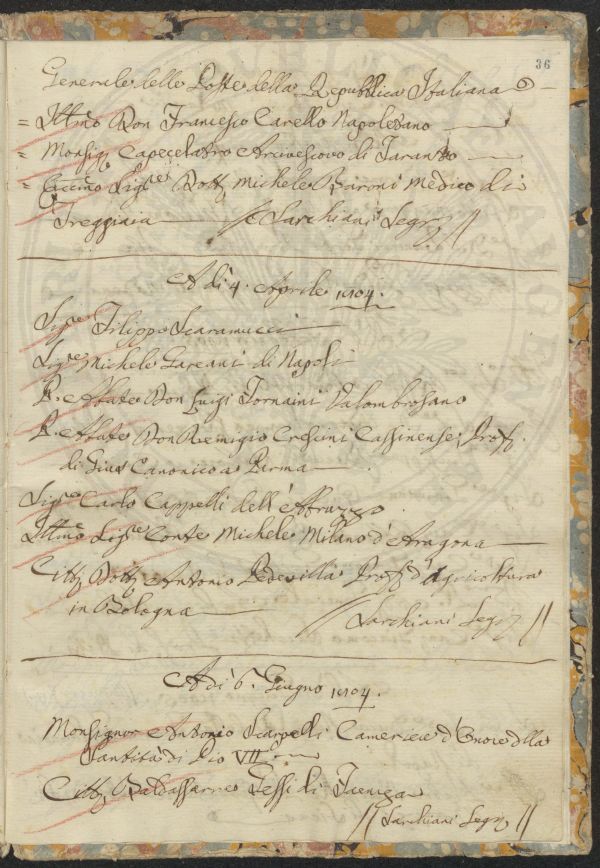 36
Generale delle Poste della Repubblica Italiana
= Illmo Don Francesco Carello Napoletano
= Monsigr Capecelatro Arcivescovo di Taranto
= Sigre Dottr Michele Baroni Medico di
Treggiaia Sarchiani Segr
A dì 4. Aprile 1804.
Sigre Filippo Scaramucci
Sigre Michele di Napoli
P. Abate Don Luigi Fornaini Valombrosano
P. Abate Don Remigio Crescini Cassinense, Prof.
di Gius Canonico a Parma
Sigre Carlo Cappelli dell'Abruzzo
Illmo Sigre Conte Michele Milano d'Aragona
Citt Dottr Antonio Pedevilla Prof d'Agricoltura
in Bologna Sarchiani Segr
A dì 6. Giugno 1804.
Monsignor Antonio Scarpelli Camerier d'Onore della
Santità di Pio VII
Citt Baldassarre Gessi di Faenza
Sarchiani Segr